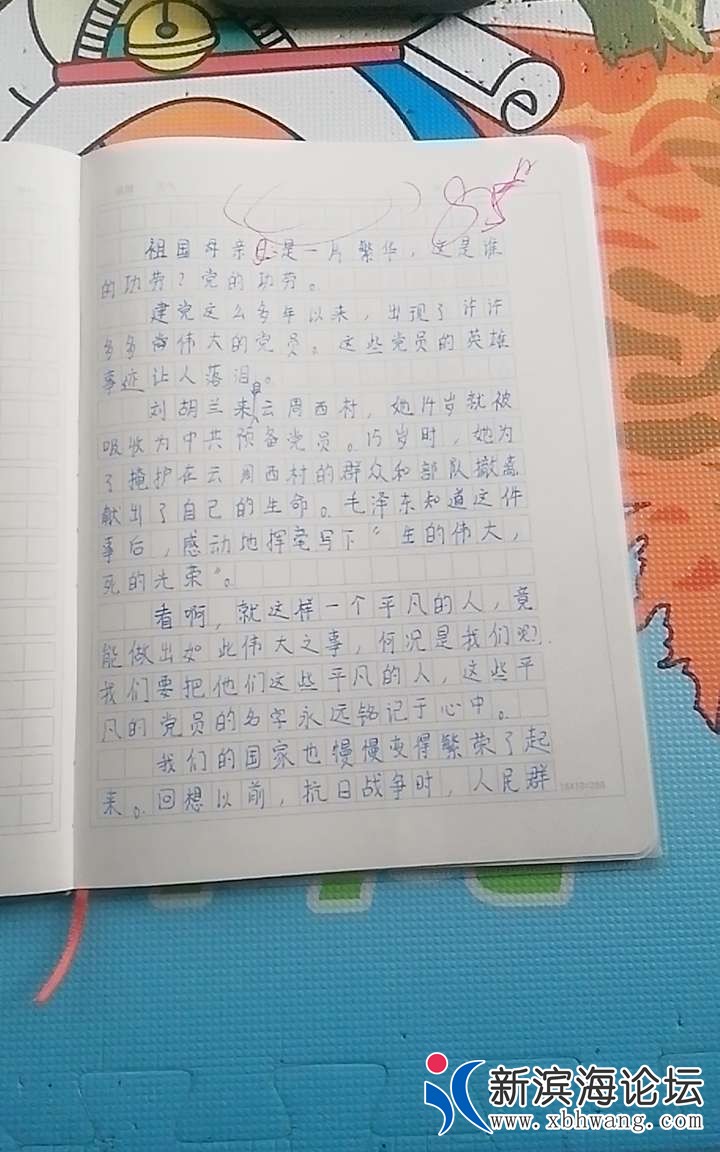 85
祖国母亲已是一片繁华，这是谁
的功劳？党的功劳。
建党这么多年以来，出现了许许
多多伟大的党员。这些党员的英雄
事迹让人落泪。
刘胡兰来自云周西村，她14岁就被
吸收为中共预备党员。15岁时，她为
了掩护在云周西村的群众和部队撤离
献出了自己的生命。毛泽东知道这件
事后，感动地挥毫写下“生的伟大，
死的光荣”。
看啊，就这样一个平凡的人，竟
能做出如此伟大之事，何况是我们呢？
我们要把他们这些平凡的人，这些平
凡的党员的名字永远铭记于心中。
我们的国家也慢慢变得繁荣了起
来。回想以前，抗日战争时，人民群
新滨海论坛
www.xbhwang.com